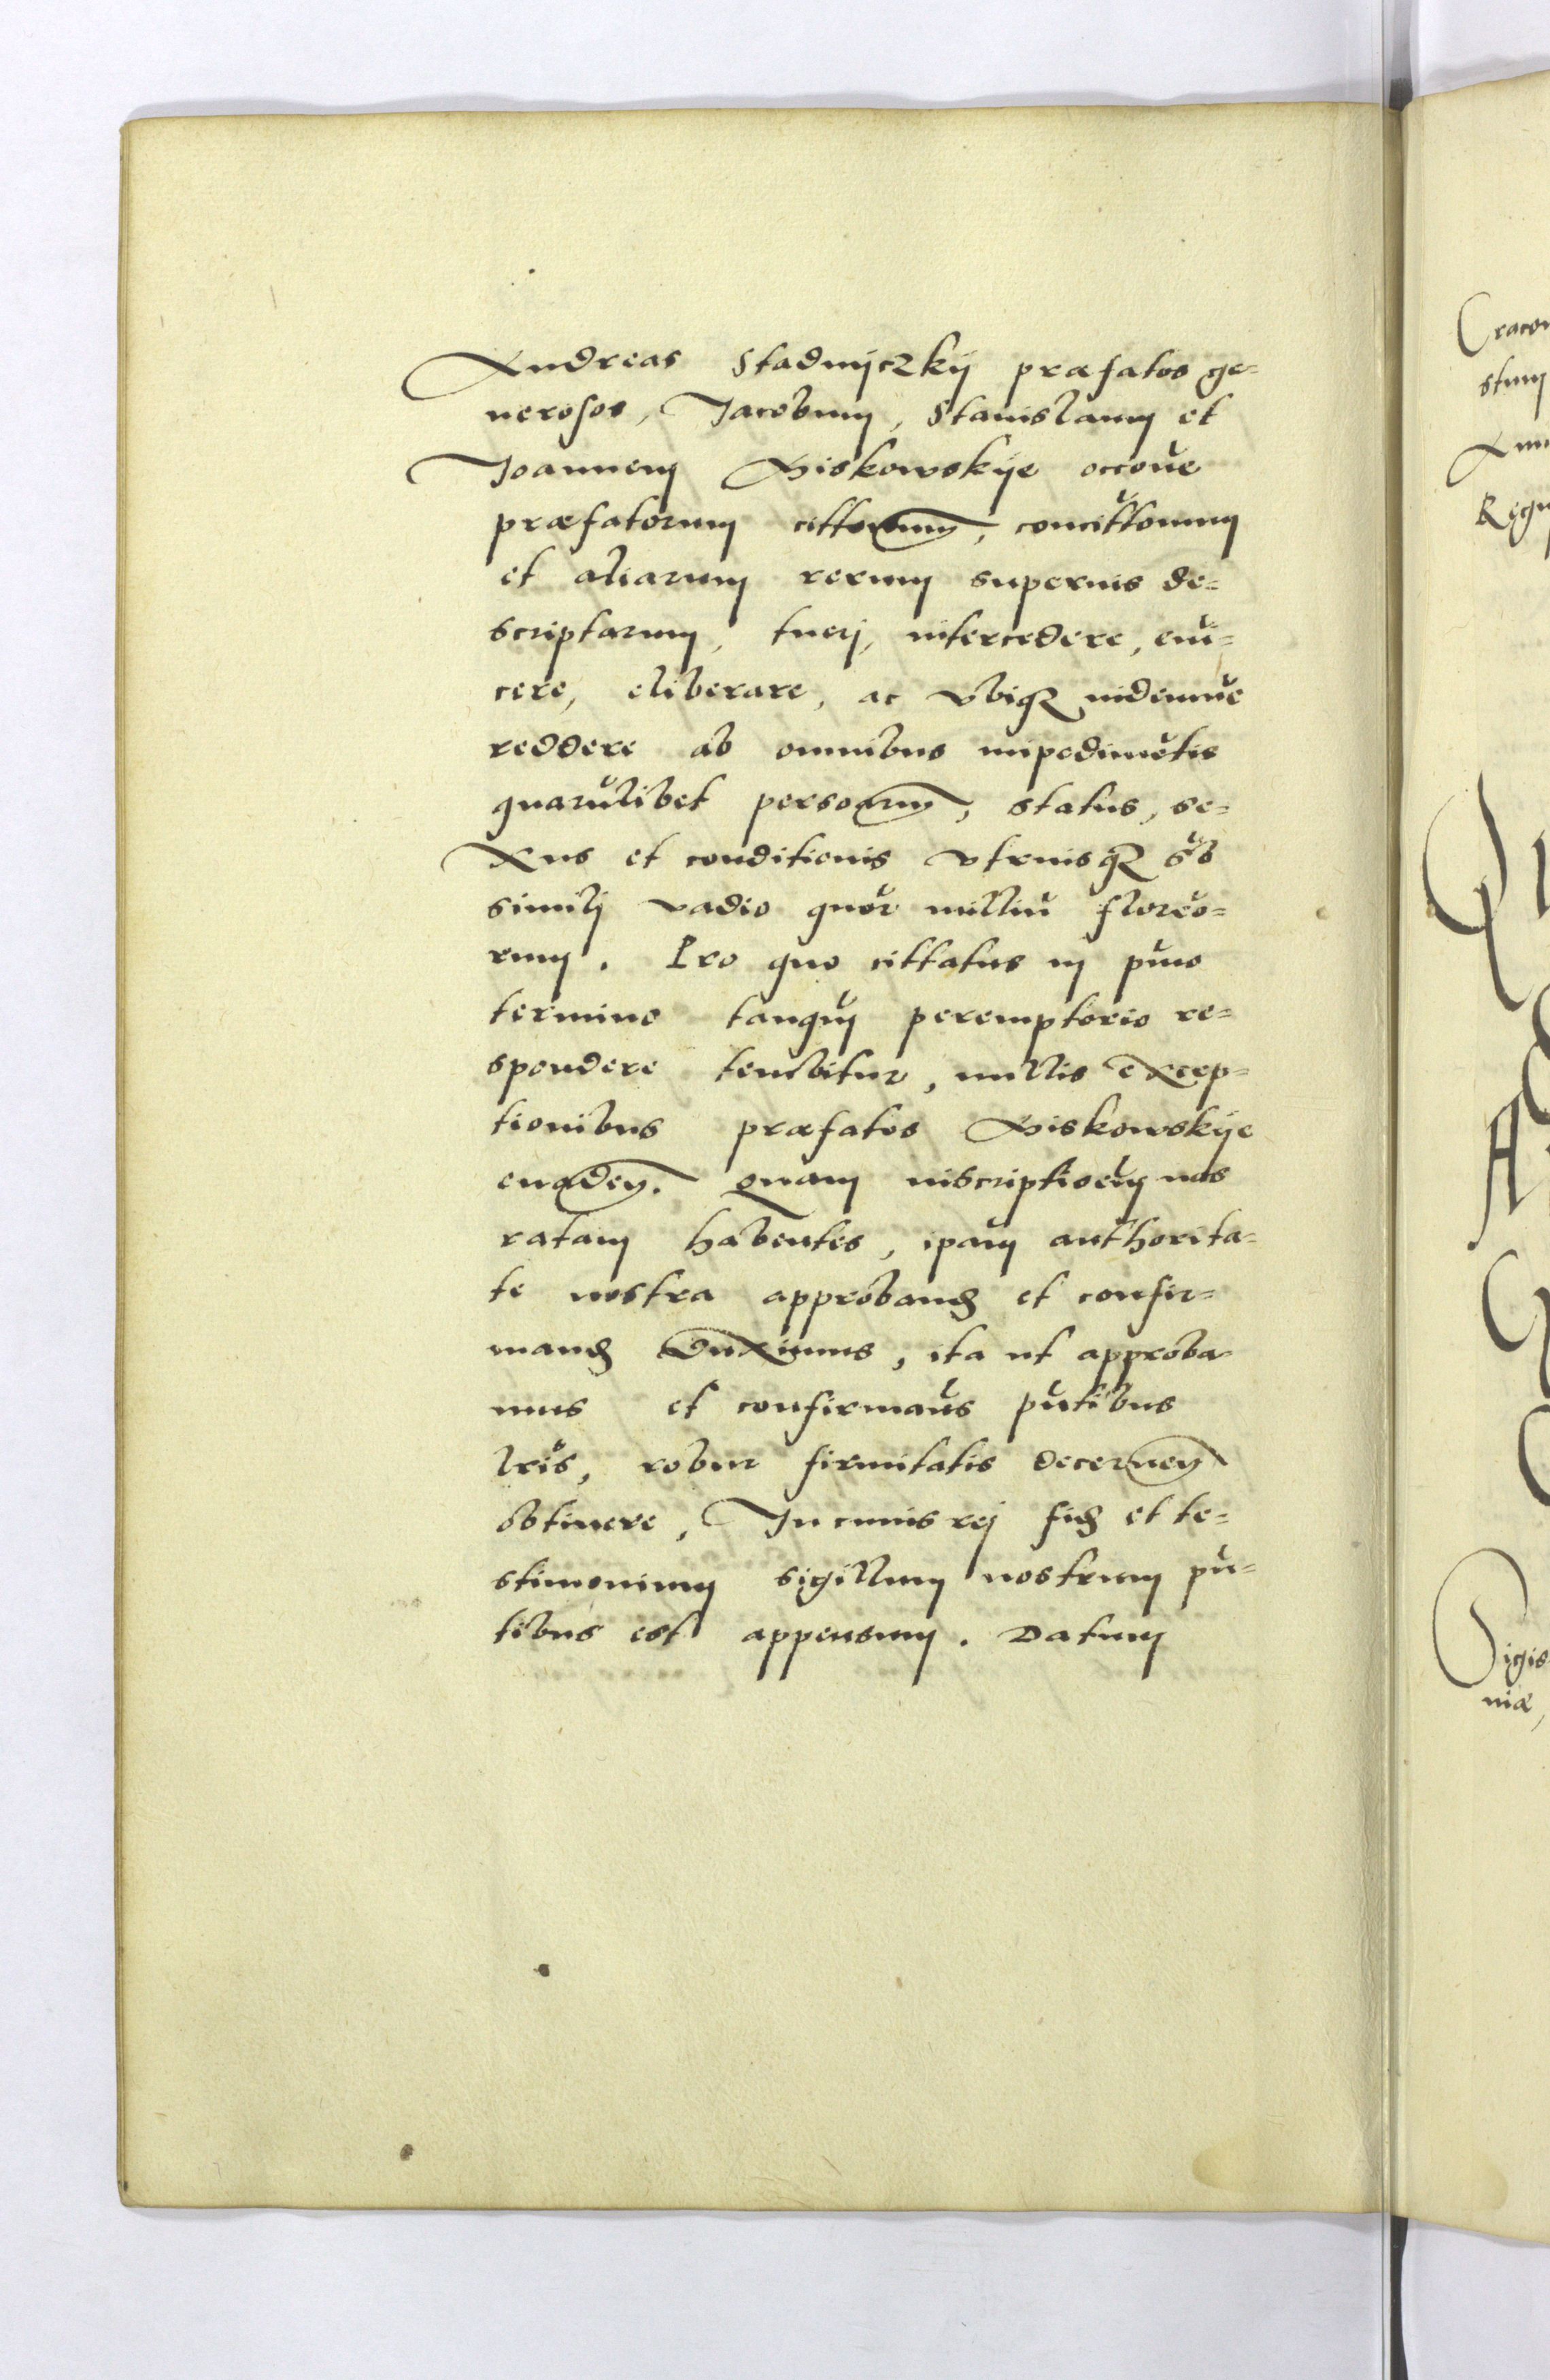 Andreas Stadnyczkij præfatos ge=
nerosos, Jacobum, Stanislaum et
Joannem Xiskowskije occone
præfatorum cittonum, concittonum
et aliarum rerum superius de=
scriptarum, tuerj, intercedere, evi=
cere, eliberare, ac vbiq3 indemne
reddere ab omnibus impedimētis
quarūlibet persoarum, status, se=
xus et conditionis vtriusq3 sūb
similj vadio quor milliū floreo=
rum. Pro quo cittatus in pmo
termino tanqm peremptorio re=
spondere tenebitur, nullis excep=
tionibus præfatos Xiskowskije
evaden. Quam inscriptioem nos
ratam habentes, ipam authorita=
te nostra approband et confir=
mand duximus, ita ut approba
mus et confirmams pntibus
lris, robur firmitatis decernen
obtinere, In cuius rej fid et te=
stimonium sigillum nostrum pn=
tibus est appensum. Datum
Craco
stum
Regn
Sigis
niæ,